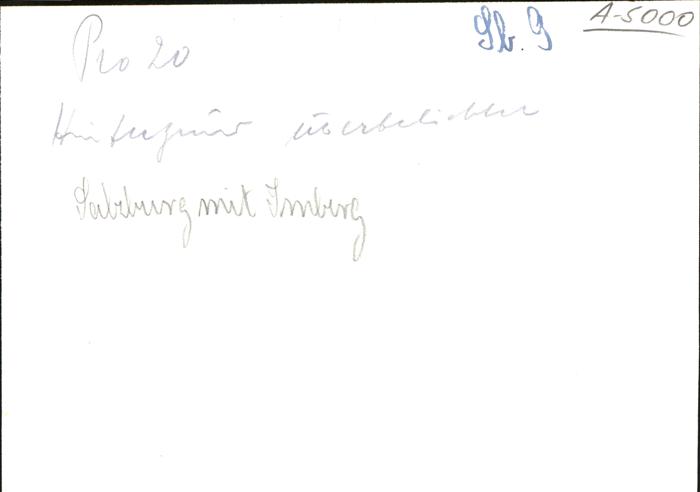 Pro 20
Sb. 9
A-5000
Hintergrund überbelichten
Salzburg mit Imberg